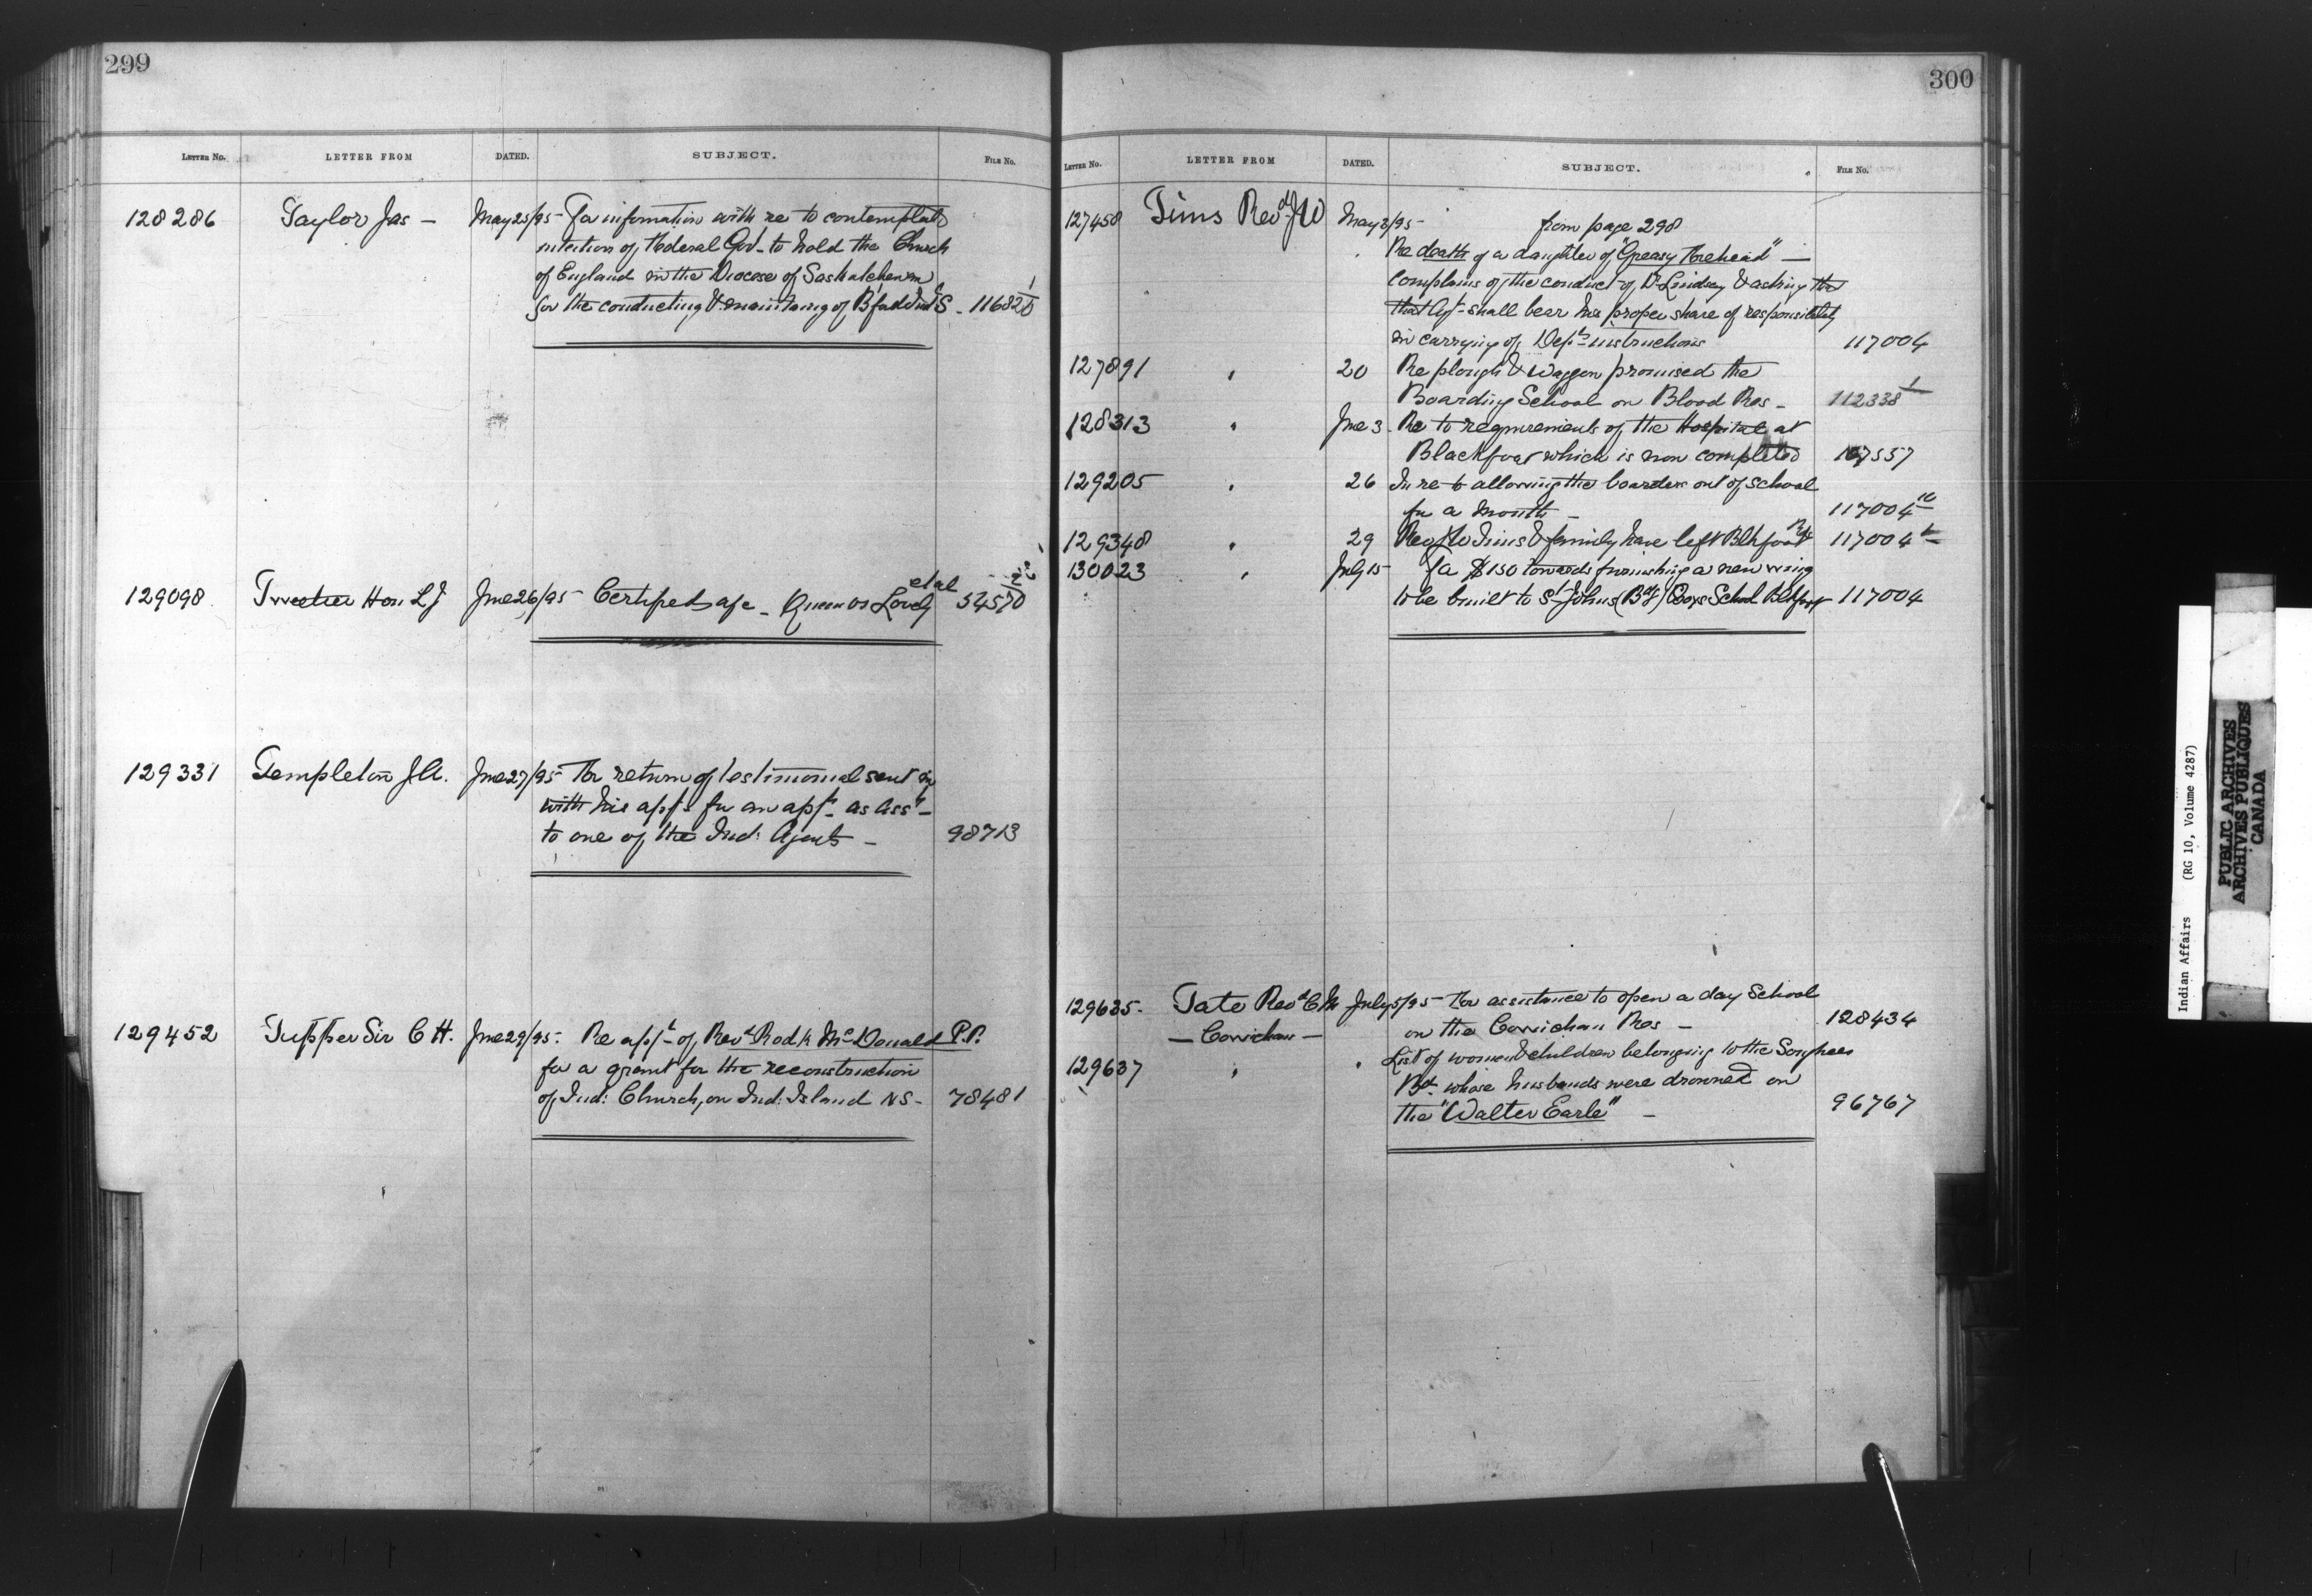 299
LETTER No. LETTER FROM DATED. SUBJECT. FILE No.
128286 Taylor Jas — May 25/95 – For information with re to contemplated
intention of Federal Gov^t to hold the Church
of England in the Diocese of Saskatchewan
for the conducting & maintaing of Bfad Ind S – 116826 1
129098 Tweedie Hon L J June 26/95 – Certified a/c – Queen vs Lovely etal 34570
129331 Templeton J A. June 27/95 – For return of testimonial sent in
with his app^n for an app^t as Ass^t –
to one of the Ind: Agents – 98713
129452 Tupper Sir C H. June 29/95 – Re app^n of Rev^d Rod^k M^cDonald P.P.
for a grant for the reconstruction
of Ind: Church, on Ind: Island NS – 78481
300
LETTER No. LETTER FROM DATED. SUBJECT. FILE No.
127458 Tims Rev^d J W May 8/95 – from page 298
Re death of a daughter of "Greasy Forehead" —
complains of the conduct of D^r Lindsay & asking
that Agt shall bear his proper share of responsibility
in carrying of Dep^ts instructions 117004
127891 " 20 Re plough & Waggon promised the
Boarding School on Blood Res – 112338 1
128313 " June 3 – Re to requirements of the Hospital at
Blackfoot which is now completed 107557
129205 " 26 In re to allowing the boarders out of School
for a month – 117004
129348 " 29 Rev J W Tims & family have left Blkfoot Res 117004
130023 " July 15 Fa $150 towards furnishing a new wing
to be built to S^t Johns (Bdg) Boys School Blkfoot 117004
129635 – Tate Rev^d C M July 5/95 – For assistance to open a day School
— Cowichan — on the Cowichan Res – 128434
129637 " " List of women & children belonging to the Songhees
B^d whose husbands were drowned on
the "Walter Earle" – 96767
Indian Affairs (RG 10, Volume 4287)
PUBLIC ARCHIVES
ARCHIVES PUBLIQUES
CANADA